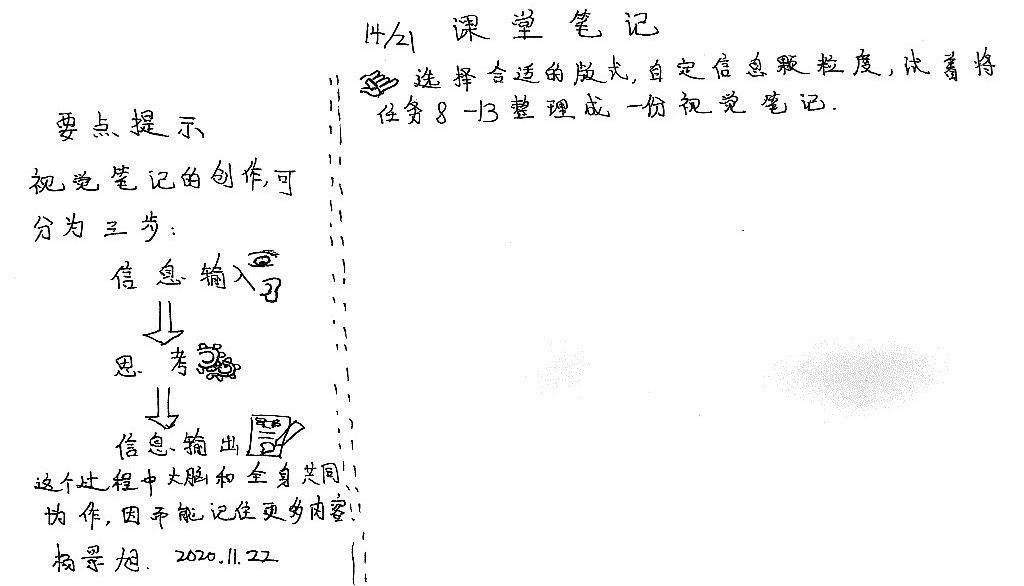 14/21 课堂笔记
选择合适的版式,自定信息颗粒度,试着将
任务8-13整理成一份视觉笔记.
要点提示
视觉笔记的创作,可
分为三步:
信息输入
思考
信息输出
这个过程中大脑和全身共同
协作,因而能记住更多内容.
杨景旭. 2020.11.22